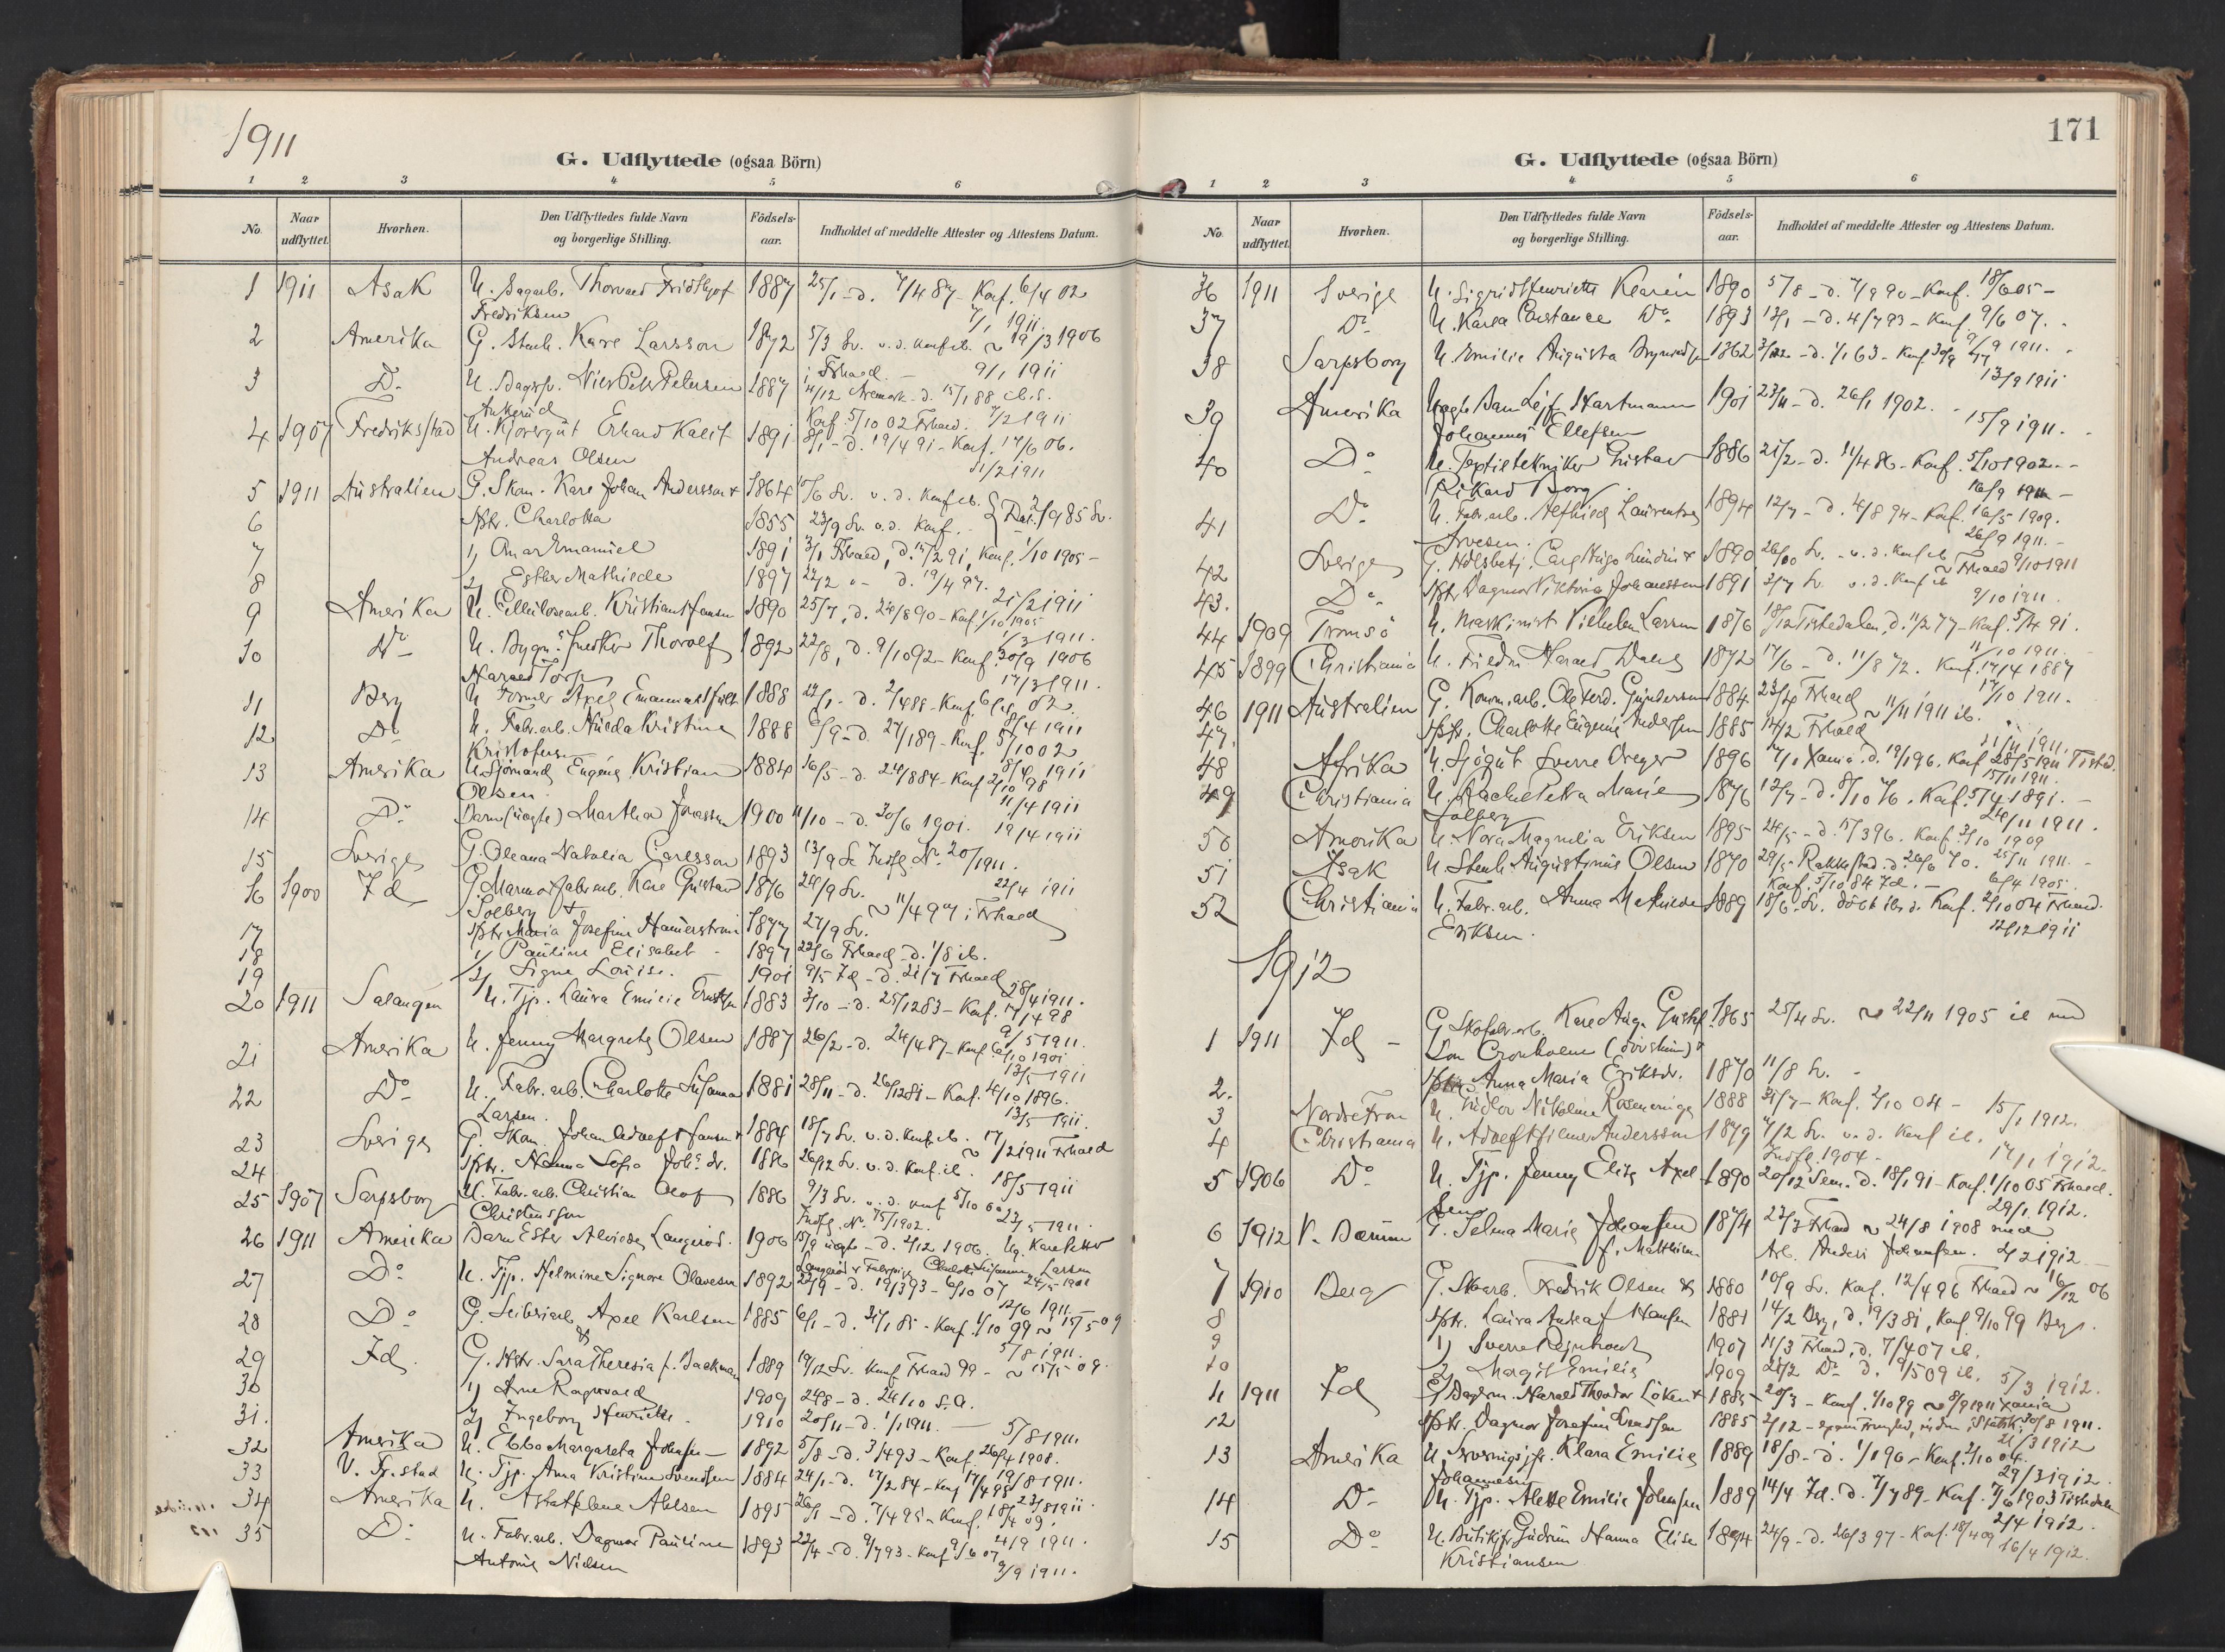 1911
G. Udflyttede (ogsaa Börn)
1 2 3 4 5 6
No. Naar udflyttet. Hvorhen. Den Udflyttedes fulde Navn og borgerlige Stilling. Födsels-aar. Indholdet af meddelte Attester og Attestens Datum.
1 1911 Asak U. Thorvald Fridthjof 1887 25/1 - d. 7/4 87 - Konf. 6/4 02
Fredriksen 7/1 1911
2 Amerika G. Stenh. Kare Larsson 1872 5/3 Sv. v. d. Konf. ib. ~ 19/3 1906
i Frhald. - 9/1 1911
3 Do U. Niels Petersen 1887 4/12 Aremark d. 15/1 88 ib. s.
Ankerud Konf. 5/10 02 Frhald. 7/2 1911
4 1907 Fredriksstad U. Erhard Kalif 1891 8/1 - d. 19/4 91 - Konf. 17/6 06.
Andreas Olsen 11/2 1911
5 1911 Australien G. Skom. Kare Johan Andersson & 1864 10/6 Sv. v. d. Konf. ib.
6 Hstr. Charlotta 1855 23/9 Sv. v. d. Konf. -
7 1) Emanuel 1891 3/1 Frhald, d. 15/2 91, Konf. 1/10 1905 -
8 2) Esther Mathilde 1897 22/2 - d. 19/4 97. 21/2 1911
9 Amerika U. Cellulosearb. Kristian Hansen 1890 25/7, d. 24/8 90 - Konf. 1/10 1905
1/3 1911.
10 Do U. Thorolf 1892 22/8, d. 9/10 92 - Konf. 30/9 1906
Harald Torp 17/3 1911.
11 Berg U. Former Axel Emanuel 1888
8/4 1911
12 Do U. Fabr. arb. Hulda Kristine 1888 6/9 - d. 27/1 89 - Konf. 5/10 02
Kristofersen 8/4 1911
13 Amerika U. Sjömand Eugéne Kristian 1884 16/5 - d. 24/8 84 - Konf. 2/10 98
Olsen 11/4 1911
14 Do Barn (uægte) Martha Jonassen 1900 11/10 - d. 30/6 1901. 19/4 1911
15 Sverige G. Oleana Natalia Carlsson 1893 13/9 Sv. Indfl. No 20/1911.
16 1900 Id G. Marmorfabr. arb. Kare Gustav 1876 24/9 Sv. 22/4 1911
Solberg & ~ 11/4 97 i Frhald
17 Hstr. Maria Josefine Hammerström 1877 27/9 Sv.
18 1) Pauline Elisabet - 1897 22/6 Frhald - d. 1/8 ib.
19 2) Signe Lovise. 1901 9/5 Id - d. 21/7 Frhald
28/4 1911.
20 1911 Salangen U. Tjp. Laura Emilie 1883 3/10 - d. 25/12 83 - Konf. 17/4 98
9/5 1911.
21 Amerika U. Jenny Margrethe Olsen 1887 26/2 - d. 24/4 87 - Konf. 6/10 1901
13/5 1911
22 Do U. Fabr. arb. Charlotte Susanna 1881 28/11 - d. 26/12 81 - Konf. 4/10 1896.
Larsen. 13/5 1911.
23 Sverige G. Skom. Johan Adolf Jansen & 1884 18/7 Sv. v. d. Konf. ib. ~ 17/2 1911 Frhald
24 Hstr. Hanna Sofia Joh.s dr. 1886 26/12 Sv. v. d. Konf. ib. 18/5 1911
25 1907 Sarpsborg U. Fabr. arb. Christian Olof 1886 9/3 Sv. v. d. Konf. 5/10
Christensson Indfl. No 75/1902. 23/5 1911.
26 1911 Amerika Barn Ester Alvilde Langerød. 1906 15/9 uægte - d. 2/12 1906. Ug. Kare Petter
Langerød & Fabrpige Charlotte Susanna Larsen
27 Do U. Tjp. Helmine Signore Olavesen 1892 22/9 - d. 19/3 93 - 6/10 07 24/5 1911
12/6 1911.
28 Do G. Axel Karlsen 1885 6/1 - d. 31/1 85 - Konf. 1/10 99 ~ 15/5 09
& 5/8 1911.
29 Id G. Hstr. Sara Theresia f. Backman 1889 19/12 Sv. Konf. Frhald 99 - ~ 15/5 09.
30 1) Arne Ragnvald 1909 24/8 - d. 24/10 s. a.
31. 2) Ingeborg Henriette - 1910 20/11 - d. 1/1 1911. - 5/8 1911.
32 Amerika U. Ebba Margareta Johnsen - 1892 5/8 - d. 3/4 93 - Konf. 26/4 1908.
19/8 1911.
33 V. Fr.stad U. Tjp. Anna Kristine Svendsen 1884 24/1 - d. 17/2 84 - Konf. 17/4 98
23/8 1911.
34 Amerika U. Helene Ahlsen 1895 26/1 - d. 7/4 95 - Konf. 18/4 09.
4/9 1911.
35 Do U. Fabr. arb. Dagmar Pauline 1893 22/4 - d. 9/7 93 - Konf. 9/6 07
Antonie Nielsen 9/9 1911.
171
G. Udflyttede (ogsaa Börn)
1 2 3 4 5 6
No. Naar udflyttet. Hvorhen. Den Udflyttedes fulde Navn og borgerlige Stilling. Födsels-aar. Indholdet af meddelte Attester og Attestens Datum.
36 1911 Sverige U. Sigrid Henriette Klarén 1890 5/8 - d. 7/9 90 - Konf. 18/6 05 -
37 Do U. Karla Constance Do 1893 13/1 - d. 4/7 93 - Konf. 9/6 07. -
9/9 1911.
38 Sarpsborg U. Emilie Augusta 1862 - d. 1/1 63 - Konf. 30/9 77
13/9 1911
39 Amerika Uægte Barn Lejf Hartmann 1901 23/11 - d. 26/1 1902. -
Johannes Ellefsen 15/9 1911.
40 Do U. Textiltekniker Gustav 1886 21/2 - d. 11/4 86 - Konf. 5/10 1902. -
Rikard Borg 16/9 1911 -
41 Do U. Fabr. arb. Alfhild Laurentze 1894 12/7 - d. 4/8 94 - Konf. 16/5 1909.
Arvesen. 26/9 1911. -
42 Sverige G. Hdlsbetj. Carl Hugo Lundin & 1890 Sv. - v. d. Konf. ib. ~ Frhald 9/10 1911
43. Do Hstr. Dagmar Viktoria Johanessen 1891 3/7 Sv. v. d. Konf. ib.
9/10 1911.
44 1909 Tromsö U. Maskinist Vilhelm Larsen 1876 18/12 Tistedalen, d. 11/2 77 - Konf. 5/4 91.
11/10 1911.
45 1899 Christiania U. Harald 1872 17/6 - d. 11/8 72. Konf. 17/4 1887
17/10 1911.
46 1911 Australien G. Komm. arb. Ole Ferd. Gundersen 1884 23/4 Frhald ~ 11/11 1911 ib.
47. Hstr. Charlotte Eugenie Andersen 1885 14/2 Frhald
11/11 1911.
48 Afrika U. Sjögut Sverre Dreyer 1896 7/1 Xania d. 19/1 96. Konf. 28/5 1911 Tisted.
15/11 1911.
49 Christiania U. Rachel Petra Marie 1876 12/7 - d. 8/10 76. Konf. 5/4 1891. -
Solberg 24/11 1911.
50 Amerika U. Nora Magnelia Eriksen 1895 24/5 - d. 15/3 96. Konf. 3/10 1909
25/11 1911.
51 Asak U. Stenh. Augustinus Olsen 1870 29/5 Rakkestad d. 26/6 70.
Konf. 5/10 84 Id. - 6/4 1905.
52 Christiania U. Fabr. arb. Anna Mathilde 1889 18/6 Sv. döbt ib. Konf. 2/10 04 Frhald.
Eriksen. 12/12 1911
1912
1 1911 Id - G. Skofabr. arb. Kare Aug. Gustaf- 1865 25/4 Sv. ~ 22/11 1905 ib. med
son Cronholm &
2. Hstr. Anna Maria Eriksdr. 1870 11/8 Sv. -
3 Nordre Fron U. Nikoline Rosenvinge 1888 31/7 - Konf. 2/10 04 - 15/1 1912.
4 Christiania U. Adolf Hilmer Anderssen 1879 7/2 Sv. v. d. Konf. ib.
Indfl. 1904 - 17/1 1912.
5 1906 Do U. Tjp. Jenny Elise Axel- 1890 20/12 Sem. d. 18/1 91 - Konf. 1/10 05 Frhald.
sen 29/1 1912.
6 1912 V. Bærum G. Selma Marie Johansen 1874 23/3 Frhald ~ 24/8 1908 med
f. Matthies- Arb. Anders Johansen. 4/2 1912
7 1910 Berg G. Fredrik Olsen & 1880 10/9 Sv. Konf. 12/4 96 Frhald ~ 16/12 06
8 Hstr. Laura Andrea f Hansen 1881 14/2 Berg, d. 19/3 81, Konf. 9/10 99 Berg.
9 1) Sverre Rejnhardt 1907 11/3 Frhald, d. 7/4 07 ib.
10 2) Margit Emilie 1909 28/2 Do d. 9/5 09 ib. 5/3 1912.
11 1911 Id G. Harald Theodor Löken & 1885 20/3 - Konf. 1/10 99 ~ 8/9 1911 Xania
12 Hstr. Dagmar Josefine 1885 2/12 - 30/8 1911.
21/3 1912
13 Amerika U. Klara Emilie 1889 18/8 - d. 1/1 90 - Konf. 2/10 04.
Johannesen 29/3 1912.
14 Do U. Tjp. Alette Emilie Johnsen 1889 14/4 Id. d. 7/7 89 - Konf. 7/6 1903 Tistedalen
2/4 1912.
15 Do U. Butikjfr. Gudrun Hanna Elise 1894 24/9 - d. 26/3 97 - Konf. 18/4 09
Kristiansen 16/4 1912.